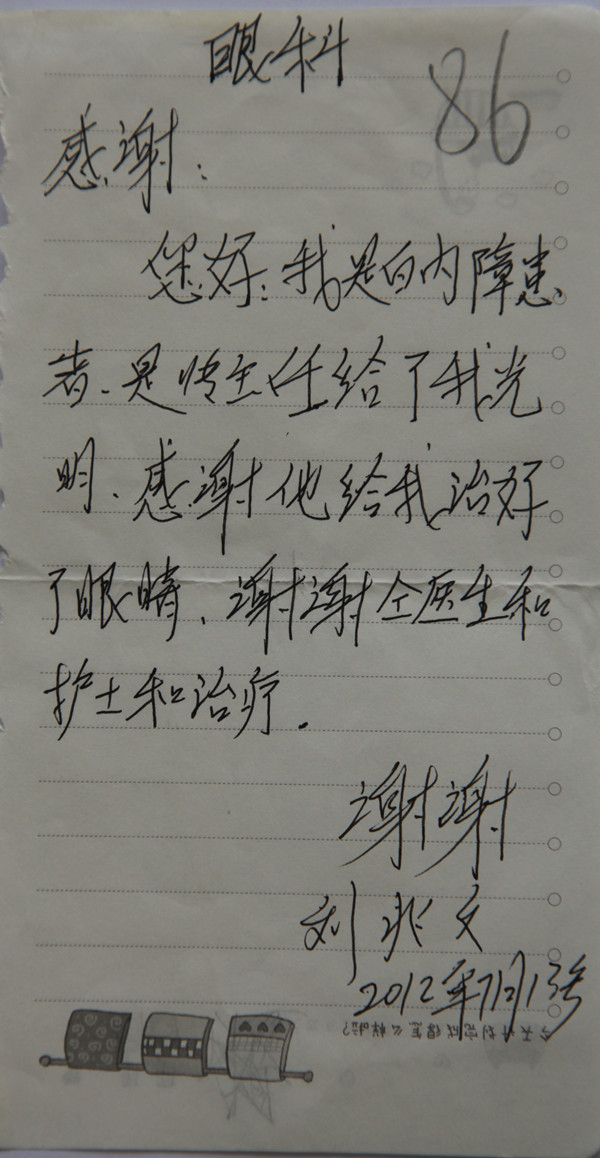 眼科
86
感谢:
您好:我是白内障患
者、是 主任给了我光
明、感谢他给我治好
了眼睛、谢谢全医生和
护士和治疗.
谢谢
刘兆文
2012年7月13号
今天计划完成得怎么样啦?